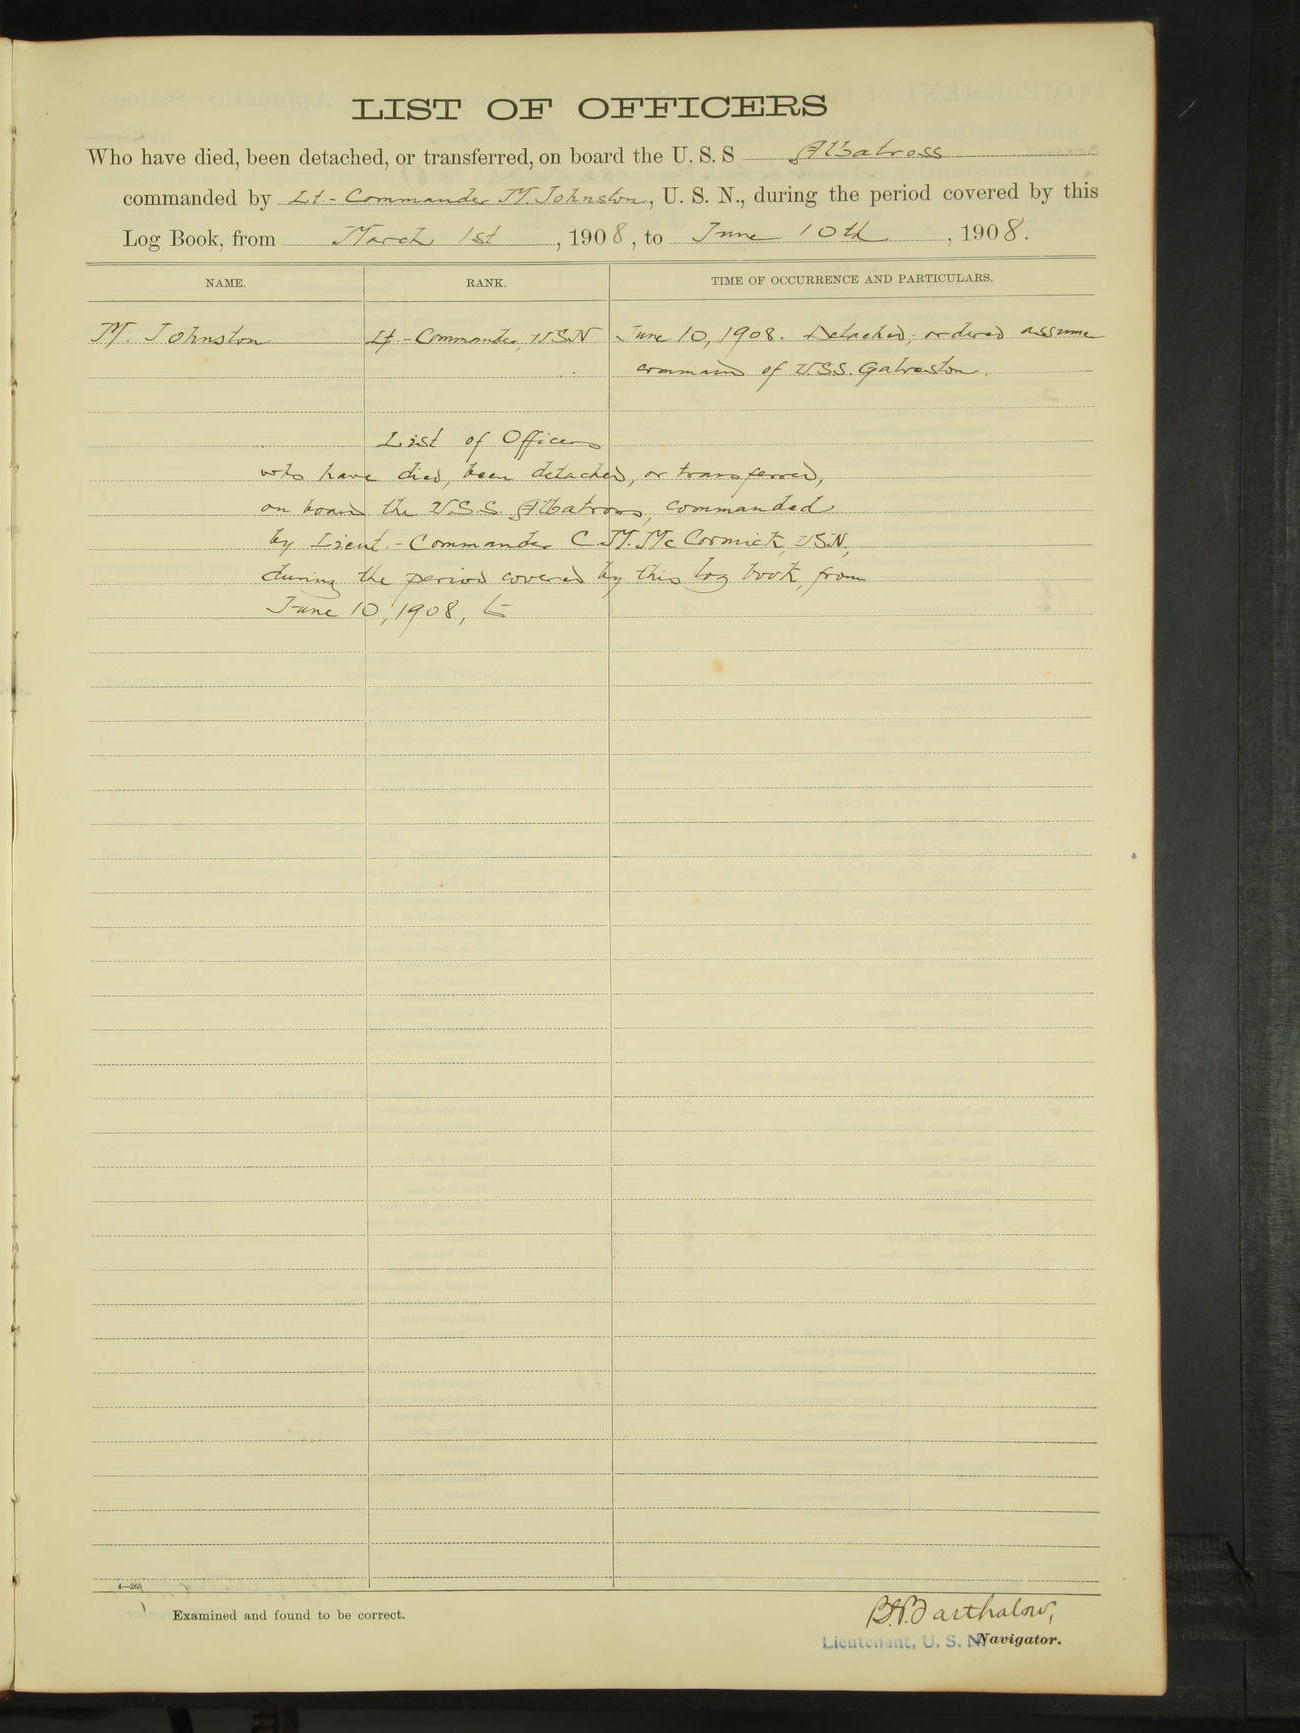 LIST OF OFFICERS
Who have died, been detached, or transferred, on board the U. S. S Albatross
commanded by Lt.-Commander M. Johnston, U. S. N., during the period covered by this
Log Book, from March 1st, 1908, to June 10th, 1908.
NAME. RANK. TIME OF OCCURRENCE AND PARTICULARS.
M. Johnston Lt.-Commander, USN June 10, 1908. Detached; ordered assume
command of U.S.S. Galveston.
List of Officers
who have died, been detached, or transferred,
on board the U.S.S. Albatross, commanded
by Lieut.-Commander C. M. McCormick, USN,
during the period covered by this log book, from
June 10, 1908, to
4—265
Examined and found to be correct.
Barthalow,
Lieutenant, U. S. N. Navigator.